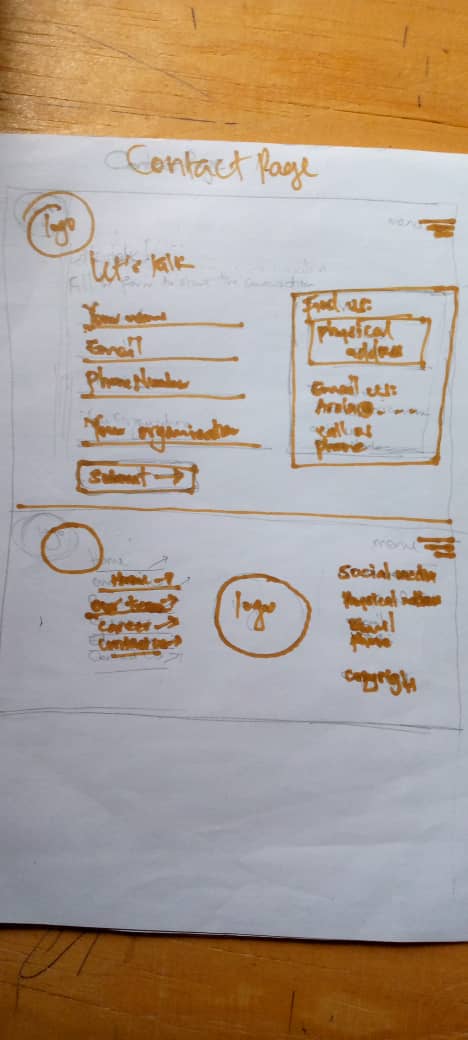 Contact Page
logo
menu
Let's talk
Fill form to start the conversation
Your name
Email
Phone Number
Your organization
Submit →
Find us:
Physical
address
Email us:
Call us
phone
menu
Home →
our team →
career →
contact us →
logo
Social media
Physical address
Email
phone
copyright